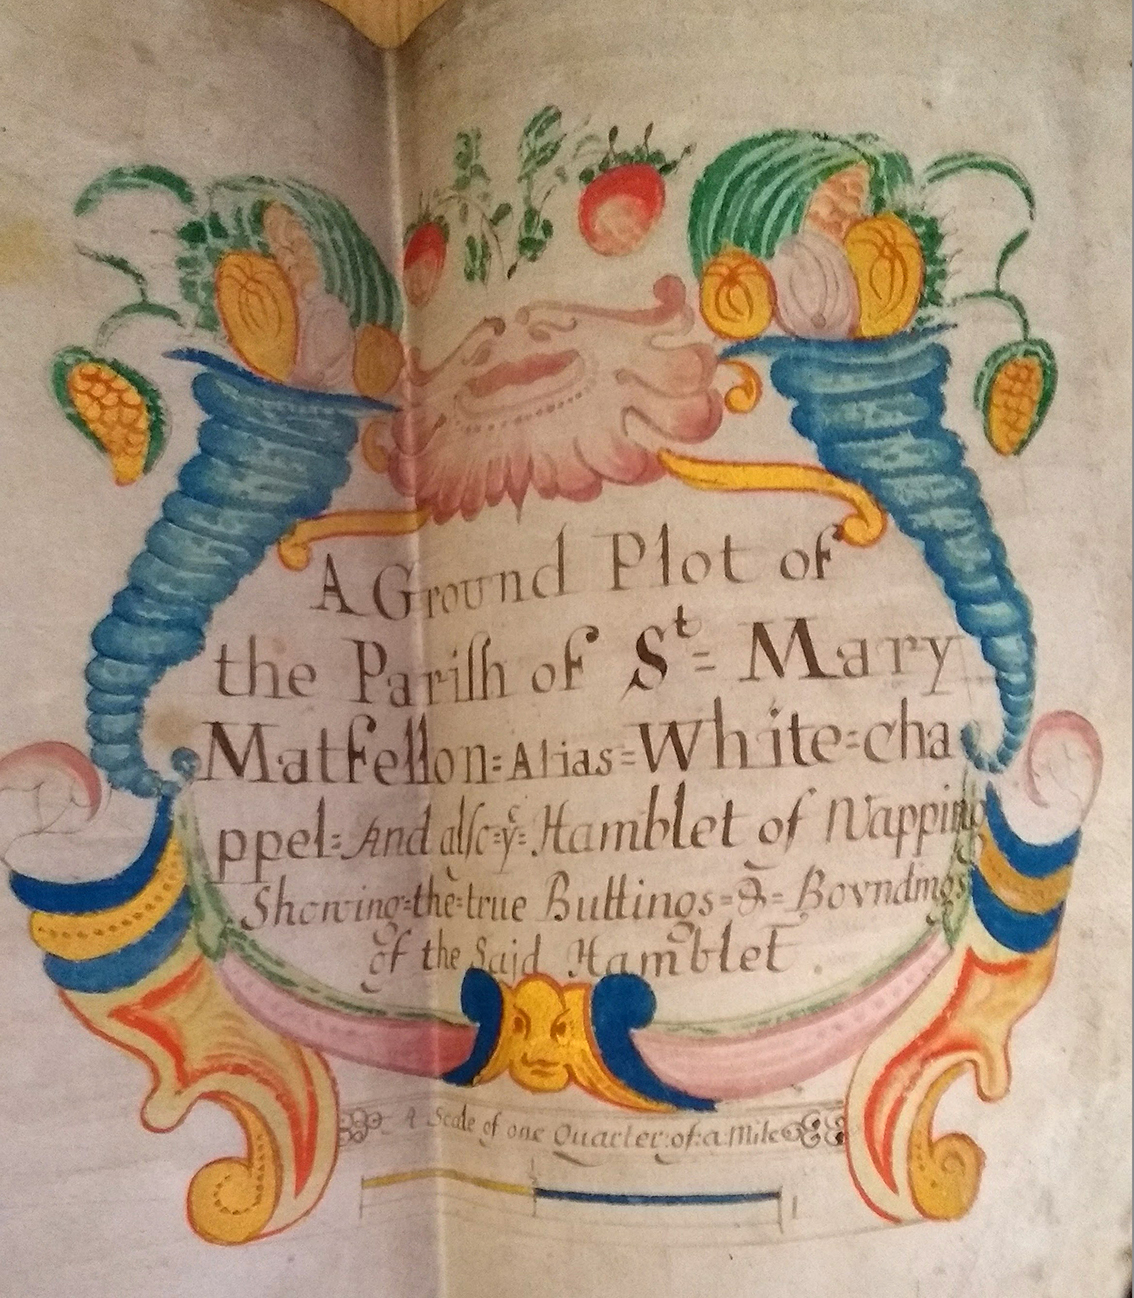 A Ground Plot of
the Pariſh of St= Mary
Matfellon=Alias=White=cha
ppel=And alſo=ye=Hamblet of Wapping
Showing=the=true Buttings=&=Bovndings
of the Said Hamblet
A Scale of one Quarter:of:a:Mile